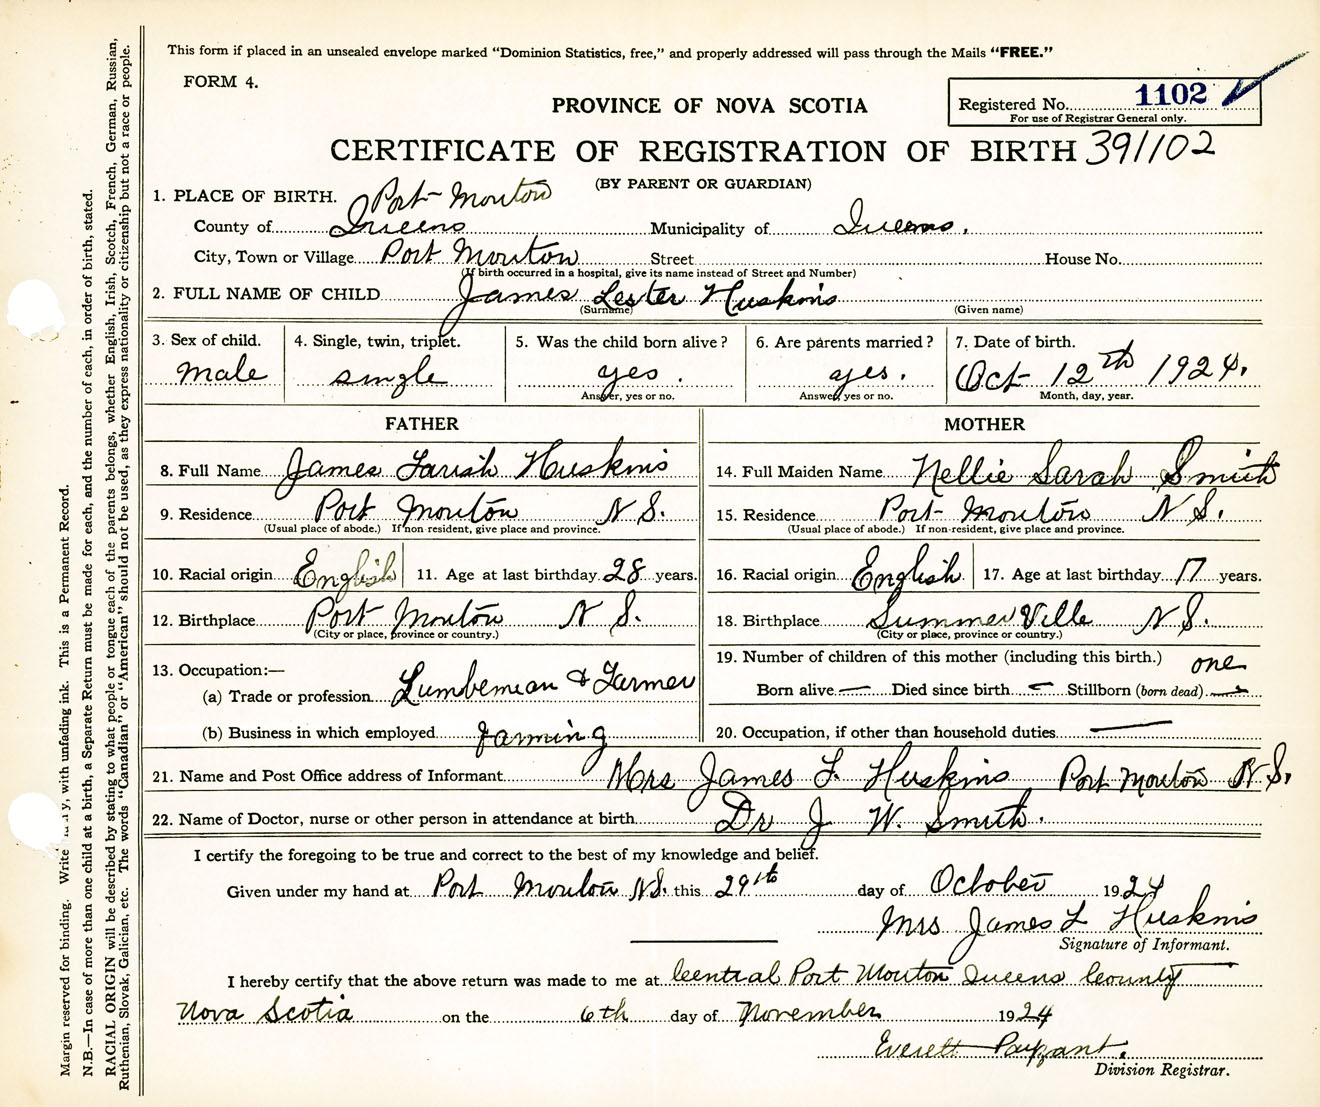 This form if placed in an unsealed envelope marked “Dominion Statistics, free,” and properly addressed will pass through the Mails “FREE.”
FORM 4.
PROVINCE OF NOVA SCOTIA
Registered No. 1102
For use of Registrar General only.
CERTIFICATE OF REGISTRATION OF BIRTH 391102
(BY PARENT OR GUARDIAN)
1. PLACE OF BIRTH. Port Mouton
County of Queens Municipality of Queens.
City, Town or Village Port Mouton Street House No.
(If birth occurred in a hospital, give its name instead of Street and Number)
2. FULL NAME OF CHILD James Lester Huskins
(Surname) (Given name)
3. Sex of child. 4. Single, twin, triplet. 5. Was the child born alive? 6. Are parents married? 7. Date of birth.
male single yes. yes. Oct 12th 1924.
Answer, yes or no. Answer, yes or no. Month, day, year.
FATHER MOTHER
8. Full Name James Farish Huskins 14. Full Maiden Name Nellie Sarah Smith
9. Residence Port Mouton N S. 15. Residence Port Mouton N S.
(Usual place of abode.) If non-resident, give place and province. (Usual place of abode.) If non-resident, give place and province.
10. Racial origin English 11. Age at last birthday 28 years. 16. Racial origin English 17. Age at last birthday 17 years.
12. Birthplace Port Mouton N S. 18. Birthplace Summer Ville N S.
(City or place, province or country.) (City or place, province or country.)
13. Occupation:— 19. Number of children of this mother (including this birth.) one
(a) Trade or profession Lumberman & Farmer Born alive — Died since birth — Stillborn (born dead) —
(b) Business in which employed farming 20. Occupation, if other than household duties —
21. Name and Post Office address of Informant Mrs James F. Huskins Port Mouton N S.
22. Name of Doctor, nurse or other person in attendance at birth Dr J W. Smith.
I certify the foregoing to be true and correct to the best of my knowledge and belief.
Given under my hand at Port Mouton N S. this 29th day of October 1924
Mrs James F Huskins
Signature of Informant.
I hereby certify that the above return was made to me at Central Port Mouton Queens County
Nova Scotia on the 6th day of November 1924
Everett Payzant.
Division Registrar.
Margin reserved for binding. Write , with unfading ink. This is a Permanent Record.
N.B.—In case of more than one child at a birth, a Separate Return must be made for each, and the number of each, in order of birth, stated.
RACIAL ORIGIN will be described by stating to what people or tongue each of the parents belongs, whether English, Irish, Scotch, French, German, Russian,
Ruthenian, Slovak, Galician, etc. The words “Canadian” or “American” should not be used, as they express nationality or citizenship but not a race or people.